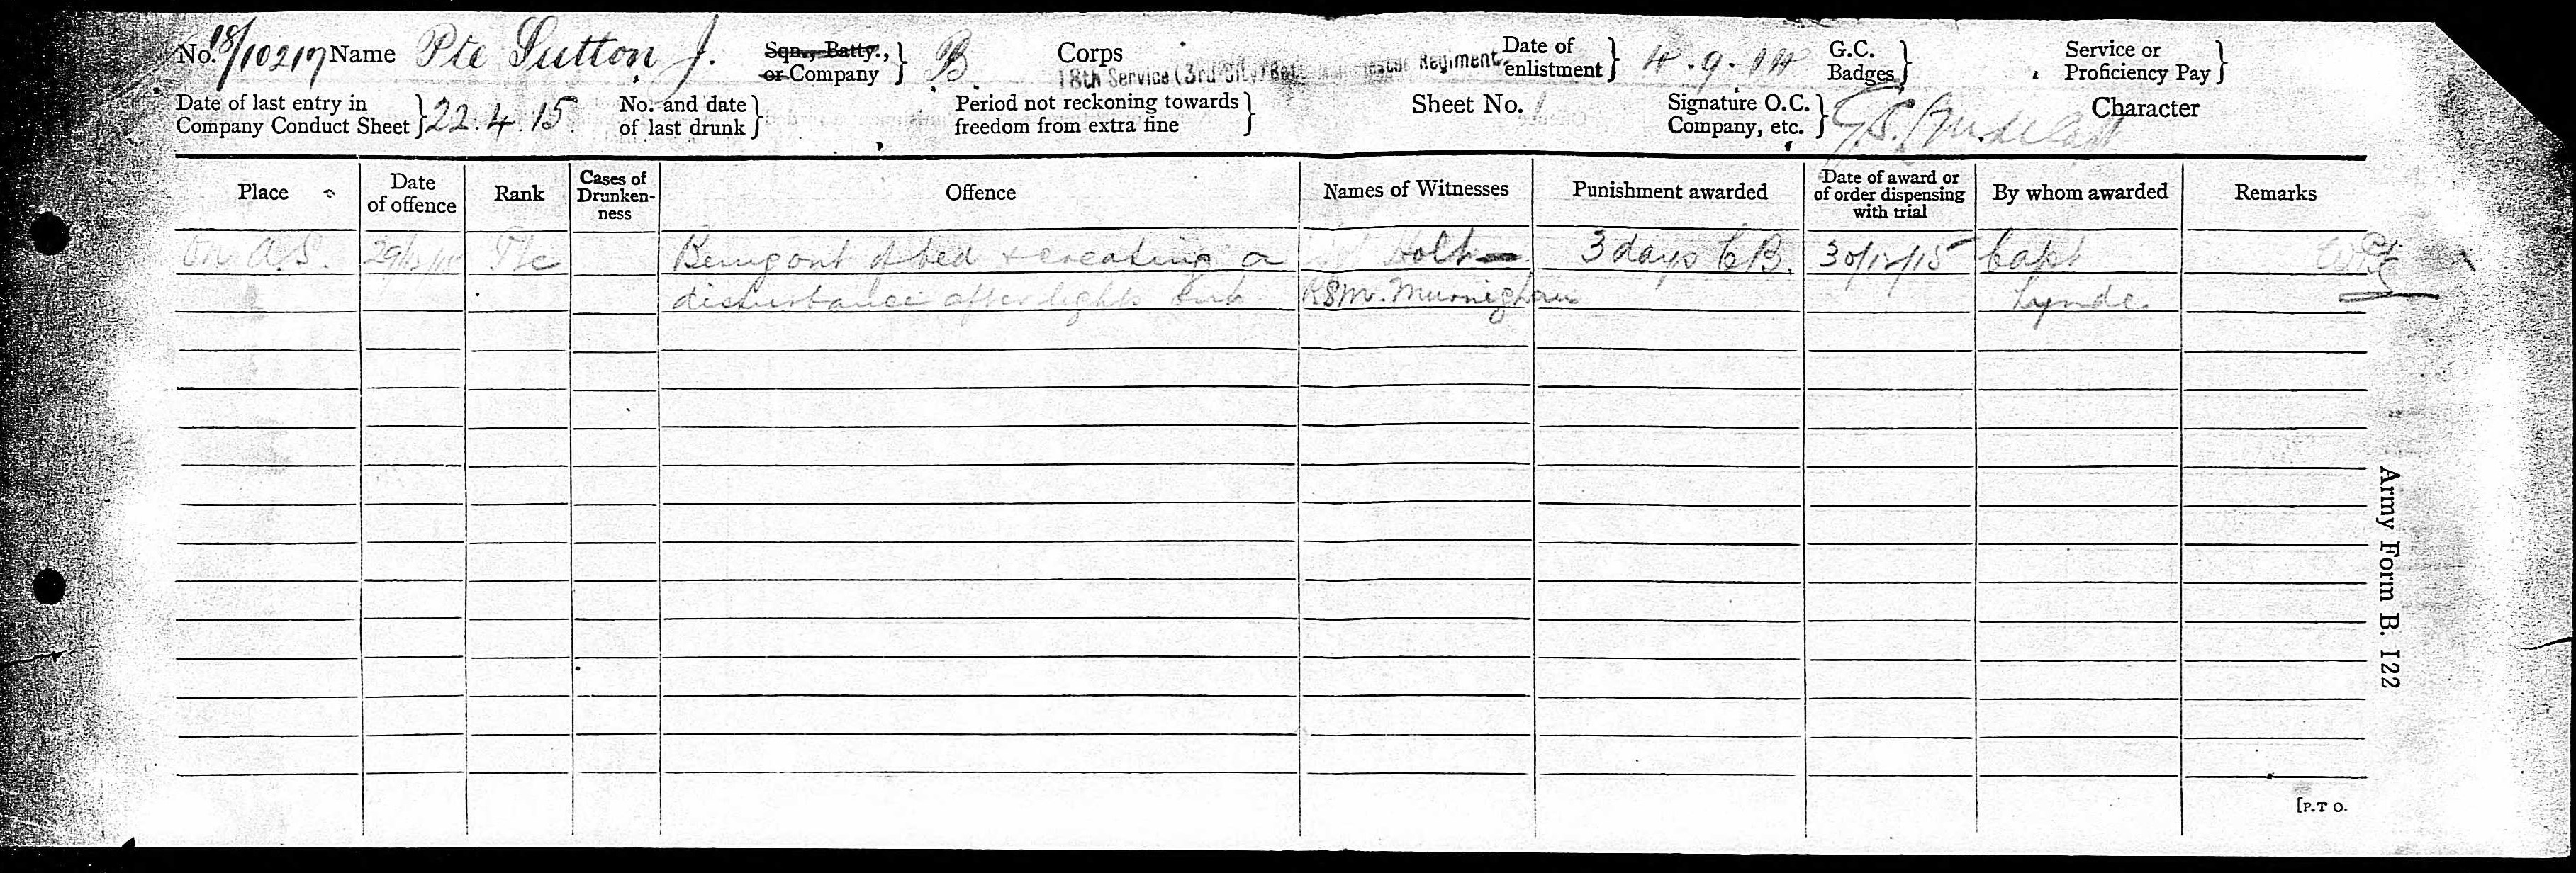 No. 18/10217 Name Pte Sutton J. Sqn., Batty., or Company } B Corps 18th Service (3rd City) Batt. Manchester Regiment Date of enlistment } 4.9.14 G.C. Badges } Service or Proficiency Pay }
Date of last entry in Company Conduct Sheet } 22.4.15 No. and date of last drunk } Period not reckoning towards freedom from extra fine } Sheet No. 1 Signature O.C. Company, etc. } Character
Place Date of offence Rank Cases of Drunken-ness Offence Names of Witnesses Punishment awarded Date of award or of order dispensing with trial By whom awarded Remarks
On A.S. 29/12/15 Pte Being out of bed & creating a Holt 3 days CB. 30/12/15 Capt
disturbance after lights out RSM. Murnighan Lynde
Army Form B. 122
[P.T O.